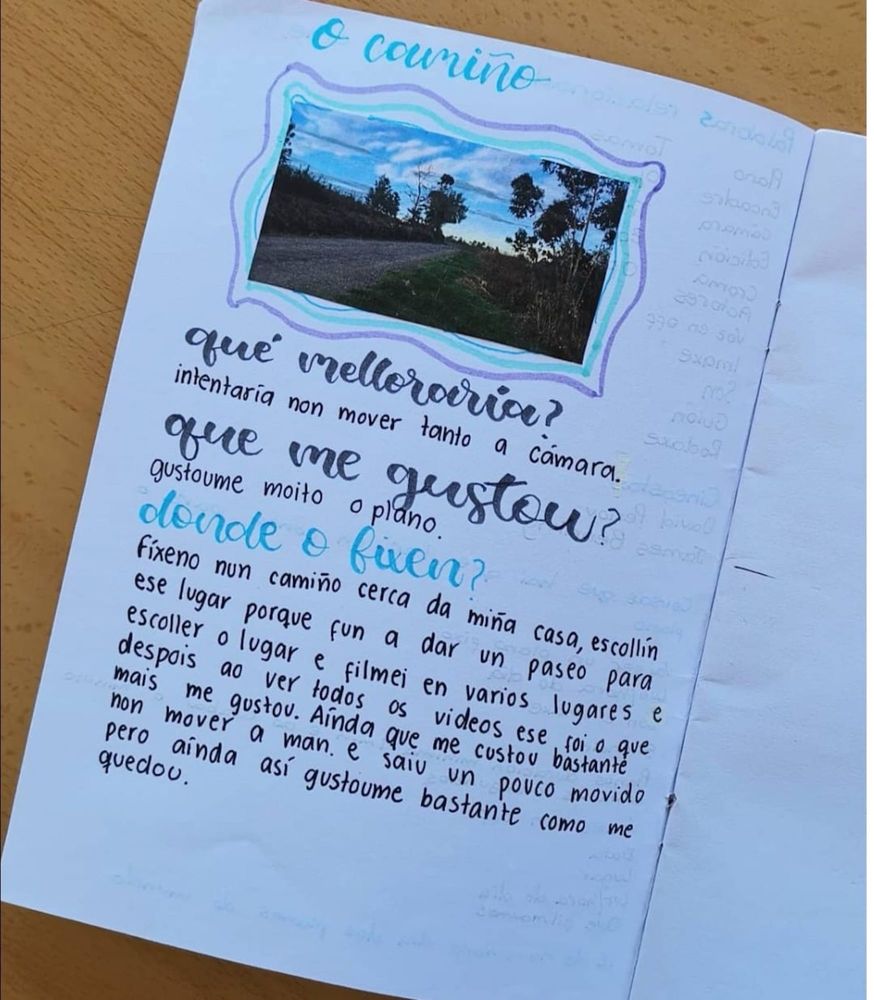 o camiño
qué melloraría?
intentaría non mover tanto a cámara.
que me gustou?
gustoume moito o plano.
donde o fixen?
fíxeno nun camiño cerca da miña casa, escollín
ese lugar porque fun a dar un paseo para
escoller o lugar e filmei en varios lugares e
despois ao ver todos os videos ese foi o que
mais me gustou. Aínda que me custou bastante
non mover a man. e saiu un pouco movido
pero aínda así gustoume bastante como me
quedou.